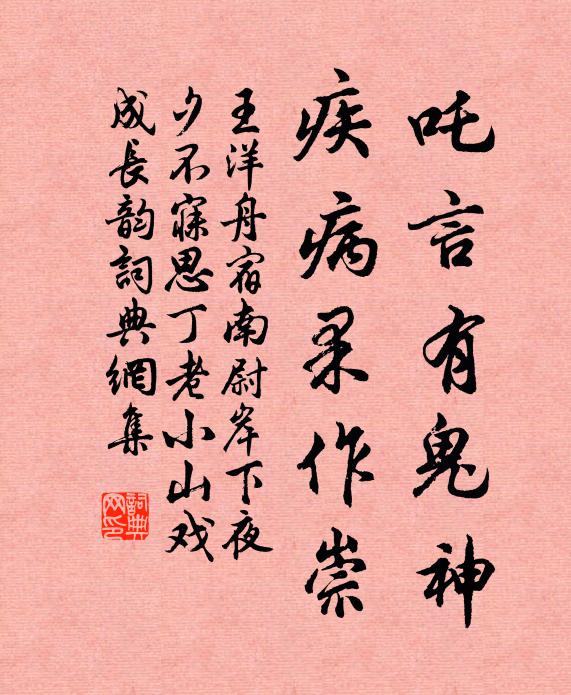 吒言有鬼神
疾病果作祟
王洋舟宿南尉岸下夜
少不寐思丁老小山戏
成長韵詞典網集
詞典
网印